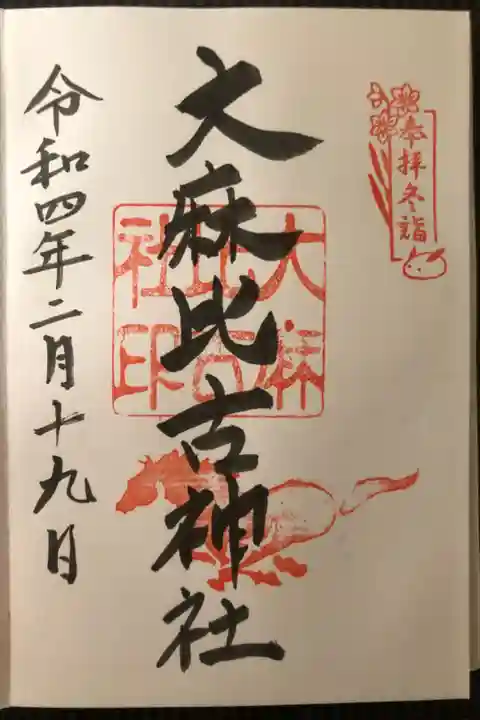 奉拝冬詣
大麻比古神社
大麻比古社印
令和四年二月十九日